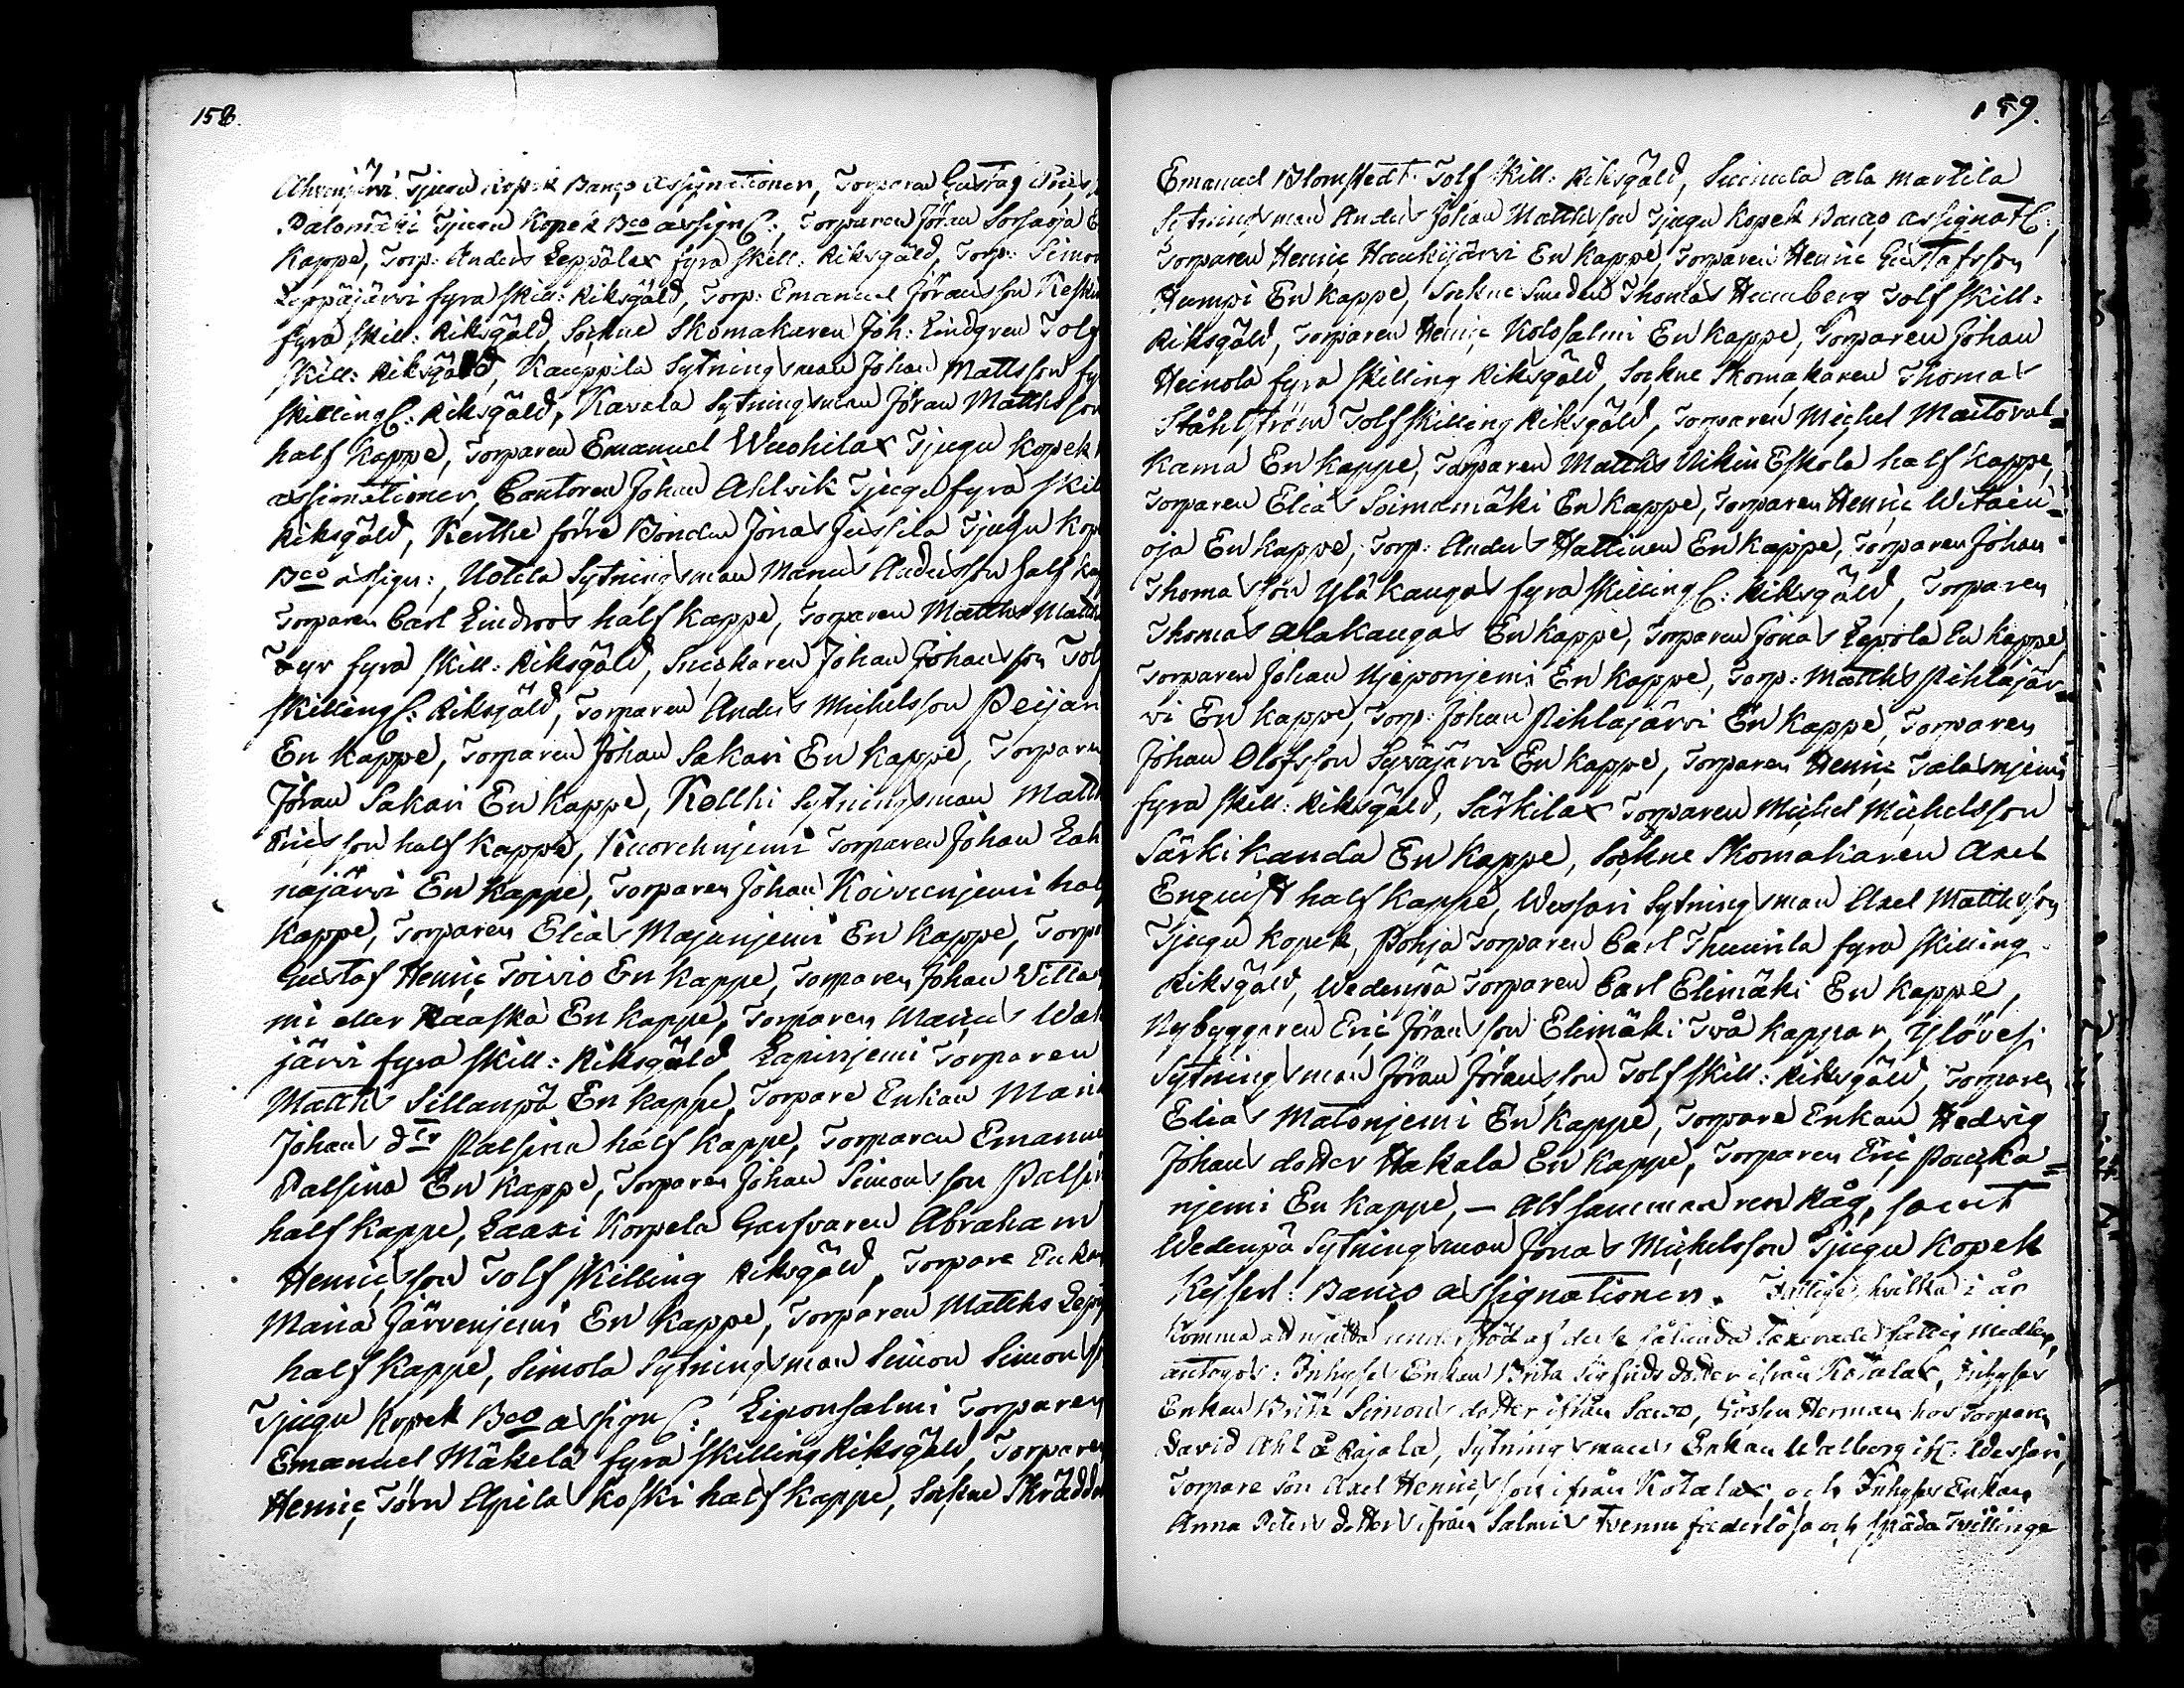 158.
Ahvenjärvi Tjugu Kopek Banco Assignationer, Torparen Gustaf Erics
Palomäki Tjugu Kopek Bco assign:, Torparen Jöran Sorsaoja E
Kappe, Torp: Anders Leppälax fyra skill: Riksgäld, Torp: Simon
Leppäjärvi fyra skill: Riksgäld, Torp: Emanuel Jöransson Keski
fyra skill: Riksgäld, Sockne Skomakaren Joh: Lindgren Tolf
skill: Riksgäld, Kauppila Sytningsman Johan Mattsson fy
skilling: Riksgäld, Kavala Sytningsman Jöran Matthsson
half Kappe, Torparen Emanuel Wuohilax Tjugu Kopek
assignationer, Cantoren Johan Ahlvik Tjugu fyra skil
Riksgäld, Kerthe förre Bonden Jonas Jussila Tjugu Kop
Bco assign:, Uotila Sytningsman Marcus Andersson half Kap
Torparen Carl Lindroos half Kappe, Torparen Matths Matth
Tyr fyra skill: Riksgäld, Snickaren Johan Johansson Tolf
skilling: Riksgäld, Torparen Anders Michelsson Peijari
En Kappe, Torparen Johan Sakari En Kappe, Torparen
Jöran Sakari En Kappe, Kollki Sytningsman Matth
Ericsson half Kappe, Kuorehnjemi Torparen Johan Lah
najärvi En Kappe, Torparen Johan Koivunjemi half
Kappe, Torparen Elias Majanjemi En Kappe, Torpa
Gustaf Henric Toivio En Kappe, Torparen Johan Willa
mi eller Raaska En Kappe, Torparen Marcus Wal
järvi fyra skill: Riksgäld, Lapinjemi Torparen
Matths Sillanpä En Kappe, Torpare Enkan Maria
Johans dtr Palsina half Kappe, Torparen Emanuel
Palsina En Kappe, Torparen Johan Simonsson Palsin
half Kappe, Laaxi Korpela Garfvaren Abraham
Henricsson Tolf skilling Riksgäld, Torpare Enkan
Maria Järvenjemi En Kappe, Torparen Matths Lepp
half Kappe, Simola Sytningsman Simon Simonss
Tjugu Kopek Bco assign: Liponsalmi Torparen
Emanuel Mäkelä fyra skilling Riksgäld, Torparen
Henric Törn Alpila Koski half Kappe, Sockne Skrädda
159.
Emanuel Blomstedt Tolf skill: Riksgäld, Suinula ala Martila
Sytningsman Anders Johan Matthsson Tjugu Kopek Banco assignat:,
Torparen Henric Haukijärvi En Kappe, Torparen Henric Gustafsson
Humpi En Kappe, Sockne Smeden Thomas Humberg Tolf skill:
Riksgäld, Torparen Henric Kolssalmi En Kappe, Torparen Johan
Heinola fyra skilling Riksgäld, Sockne Skomakaren Thomas
Ståhlström Tolf skilling Riksgäld, Torparen Michel Maitoval=
kama En Kappe, Torparen Matths Uikin Eskola half Kappe,
Torparen Elias Soimamäki En Kappe, Torparen Henric Witain=
oja En Kappe, Torp: Anders Hattinen En Kappe, Torparen Johan
Thomasson Ylä kangas fyra skilling: Riksgäld, Torparen
Thomas Alakangas En Kappe, Torparen Jonas Lepola En Kappe,
Torparen Johan Ujeponjemi En Kappe, Torp: Matths Pihlajär=
vi En Kappe, Torp: Johan Pihlajärvi En Kappe, Torparen
Johan Olofsson Syväjärvi En Kappe, Torparen Henric Talasnjemi
fyra skill: Riksgäld, Särkilax Torparen Michel Michelsson
Särkikanda En Kappe, Sockne Skomakaren Axel
Enquist half Kappe, Wessari Sytningsman Axel Matthsson
Tjugu Kopek, Pohja Torparen Carl Thuurila fyra skilling
Riksgäld, Wedenpä Torparen Carl Elimäki En Kappe,
Nybyggaren Eric Jöransson Elimäki Två Kappar, Ylövesi
Sytningsman Jöran Jöransson Tolf skill: Riksgäld, Torparen
Elias Matonjemi En Kappe, Torpare Enkan Hedvig
Johans dotter Hakala En Kappe, Torparen Eric Pouska=
njemi En Kappe, — Altsamman ren Råg, samt
Wedenpä Sytningsman Jonas Michelsson Tjugu Kopek
Kejserl: Banco assignationer. Fattige, hvilka i år
komma att njuta understöd af desse sålunda taxerade fattig Medlen,
antogos: Inhyses Enkan Brita Sigfrids dotter ifrån Kotalax, Inhyses
Enkan Brita Simons dotter ifrån Sawo, Gossen Herman hos Torparen
David Ahl å Rajala, Sytningsmans Enkan Walborg ifr: Wessari,
Torpare Son Axel Henricsson ifrån Kotalax, och Inhyses Enkans
Anna Peters dotters ifrån Salmis tvenne faderlösa och späda Tvillingar